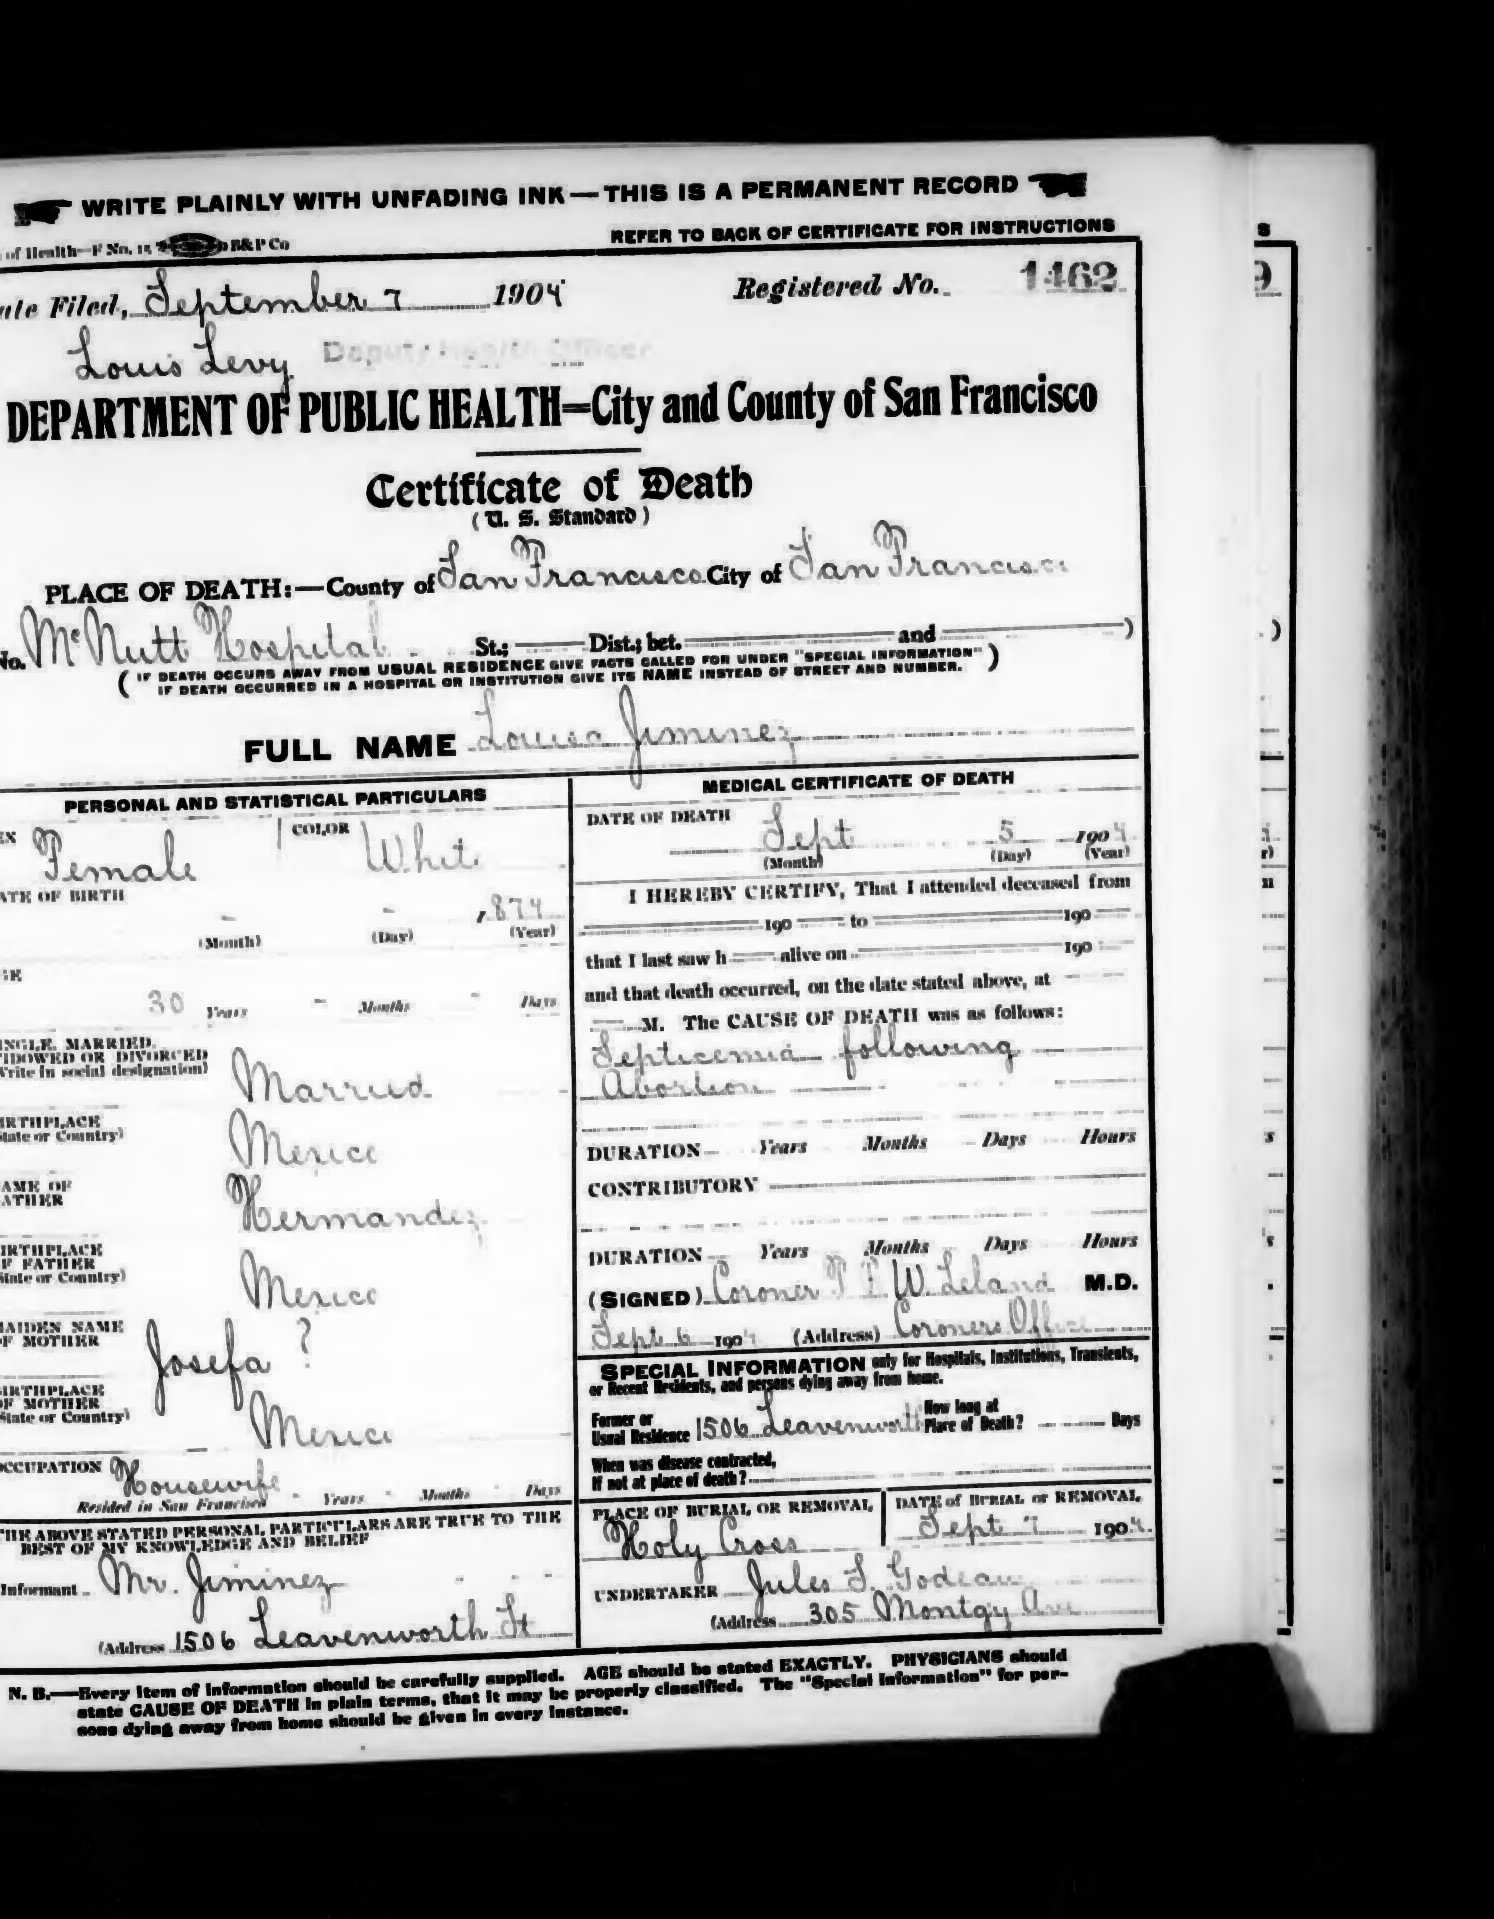 WRITE PLAINLY WITH UNFADING INK—THIS IS A PERMANENT RECORD
of Health—F No. 15 B&P Co REFER TO BACK OF CERTIFICATE FOR INSTRUCTIONS S
ate Filed, September 7 1904 Registered No. 1462 9
Louis Levy Deputy Health Officer
DEPARTMENT OF PUBLIC HEALTH—City and County of San Francisco
Certificate of Death
(U. S. Standard)
PLACE OF DEATH:—County of San Francisco City of San Francisco
No. McNutt Hospital St.; Dist.; bet. and ) )
( IF DEATH OCCURS AWAY FROM USUAL RESIDENCE GIVE FACTS CALLED FOR UNDER "SPECIAL INFORMATION" )
IF DEATH OCCURRED IN A HOSPITAL OR INSTITUTION GIVE ITS NAME INSTEAD OF STREET AND NUMBER.
FULL NAME Louisa Jiminez
PERSONAL AND STATISTICAL PARTICULARS
EX Female COLOR White
ATE OF BIRTH
- - 1874
(Month) (Day) (Year)
GE
30 Years - Months - Days
INGLE, MARRIED,
IDOWED OR DIVORCED
Write in social designation) Married
IRTHPLACE
State or Country) Mexico
AME OF
ATHER Hermandez
IRTHPLACE
F FATHER
State or Country) Mexico
MAIDEN NAME
OF MOTHER Josefa ?
BIRTHPLACE
OF MOTHER
State or Country) Mexico
OCCUPATION Housewife
Resided in San Francisco - Years - Months - Days
THE ABOVE STATED PERSONAL PARTICULARS ARE TRUE TO THE
BEST OF MY KNOWLEDGE AND BELIEF
Informant Mr. Jiminez
(Address 1506 Leavenworth St
MEDICAL CERTIFICATE OF DEATH
DATE OF DEATH
Sept 5 1904
(Month) (Day) (Year)
I HEREBY CERTIFY, That I attended deceased from
190 to 190
that I last saw h alive on 190
and that death occurred, on the date stated above, at
M. The CAUSE OF DEATH was as follows:
Septicemia following
Abortion
DURATION Years Months Days Hours
CONTRIBUTORY
DURATION Years Months Days Hours
(SIGNED) Coroner T P W. Leland M.D.
Sept 6 1904 (Address) Coroners Office
SPECIAL INFORMATION only for Hospitals, Institutions, Transients,
or Recent Residents, and persons dying away from home.
Former or
Usual Residence 1506 Leavenworth How long at
Place of Death? Days
When was disease contracted,
If not at place of death?
PLACE OF BURIAL OR REMOVAL DATE of BURIAL or REMOVAL
Holy Cross Sept 7 1904
UNDERTAKER Jules S. Godeau
(Address 305 Montgy Ave
N. B.—Every item of information should be carefully supplied. AGE should be stated EXACTLY. PHYSICIANS should
state CAUSE OF DEATH in plain terms, that it may be properly classified. The "Special Information" for per-
sons dying away from home should be given in every instance.